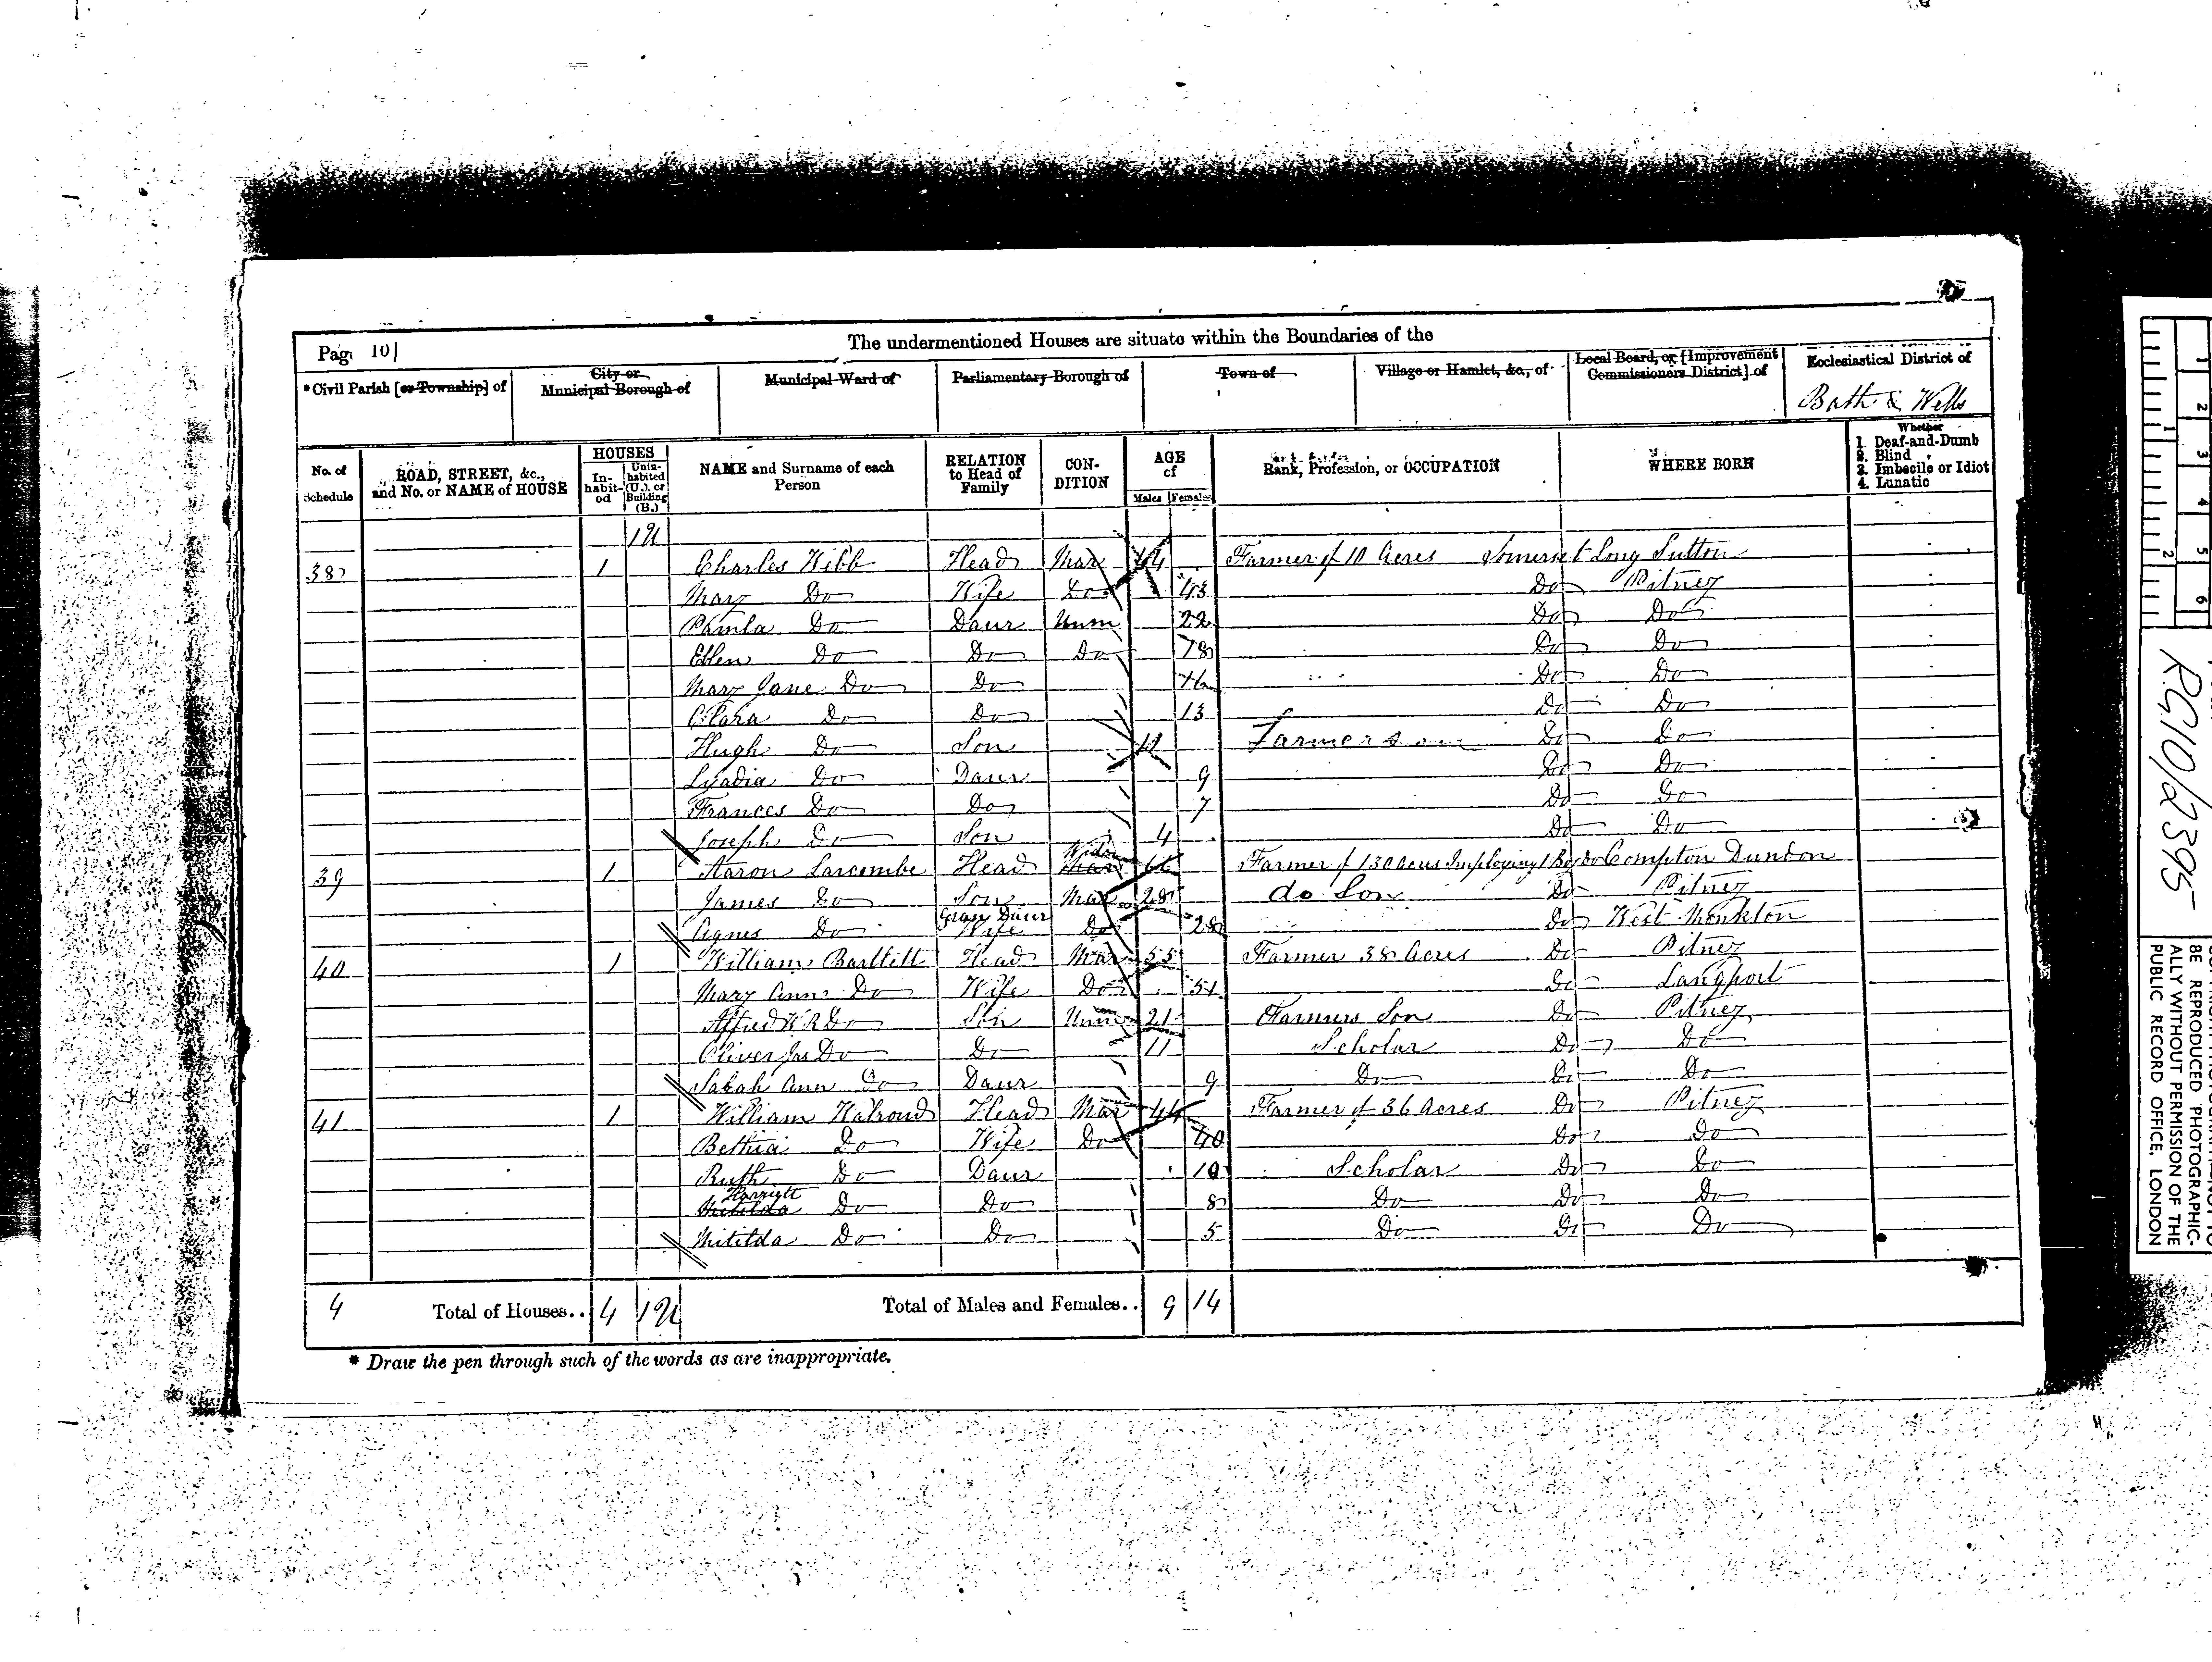 The undermentioned Houses are situate within the Boundaries of the
Page 10
*Civil Parish [or Township] of
City or Municipal Borough of
Municipal Ward of
Parliamentary Borough of
Town of
Village or Hamlet, &c., of
Local Board, or [Improvement Commissioners District] of
Ecclesiastical District of
Bath & Wells
No. of Schedule
ROAD, STREET, &c., and No. or NAME of HOUSE
HOUSES
In-habit-ed
Unin-habited (U.), or Building (B.)
NAME and Surname of each Person
RELATION to Head of Family
CON-DITION
AGE of
Males Females
Rank, Profession, or OCCUPATION
WHERE BORN
Whether
1. Deaf-and-Dumb
2. Blind
3. Imbecile or Idiot
4. Lunatic
1 U
38 1 Charles Webb Head Mar 44 Farmer of 10 Acres Somerset Long Sutton
Mary Do Wife Do 43 Do Pitney
Pamla Do Daur Unm 22 Do Do
Ellen Do Do Do 18 Do Do
Mary Jane Do Do 16 Do Do
Clara Do Do 13 Do Do
Hugh Do Son 11 Farmer son Do Do
Lyadia Do Daur 9 Do Do
Frances Do Do 7 Do Do
Joseph Do Son 4 Do Do
39 1 Aaron Larcombe Head Mar Widr 66 Farmer of 130 acres Imploying 1 Boy Do Compton Dundon
James Do Son Mar 28 do Son Do Pitney
Agnes Do Wife Gran Daur Do 28 Do West Monkton
40 1 William Bartlett Head Mar 55 Farmer 38 Acres Do Pitney
Mary Ann Do Wife Do 51 Do Langport
Alfred W R Do Son Unm 21 Farmers Son Do Pitney
Oliver Jas Do Do 11 Scholar Do Do
Sarah Ann Do Daur 9 Do Do Do
41 1 William Walrond Head Mar 44 Farmer of 36 Acres Do Pitney
Bethia Do Wife Do 40 Do Do
Ruth Do Daur 10 Scholar Do Do
Mitilda Harriett Do Do 8 Do Do Do
Mitilda Do Do 5 Do Do Do
4 Total of Houses.. 4 1 U Total of Males and Females.. 9 14
* Draw the pen through such of the words as are inappropriate.
1 2 3 4 5 6
1 2
RG10/2395
BE REPRODUCED PHOTOGRAPHIC-
ALLY WITHOUT PERMISSION OF THE
PUBLIC RECORD OFFICE, LONDON